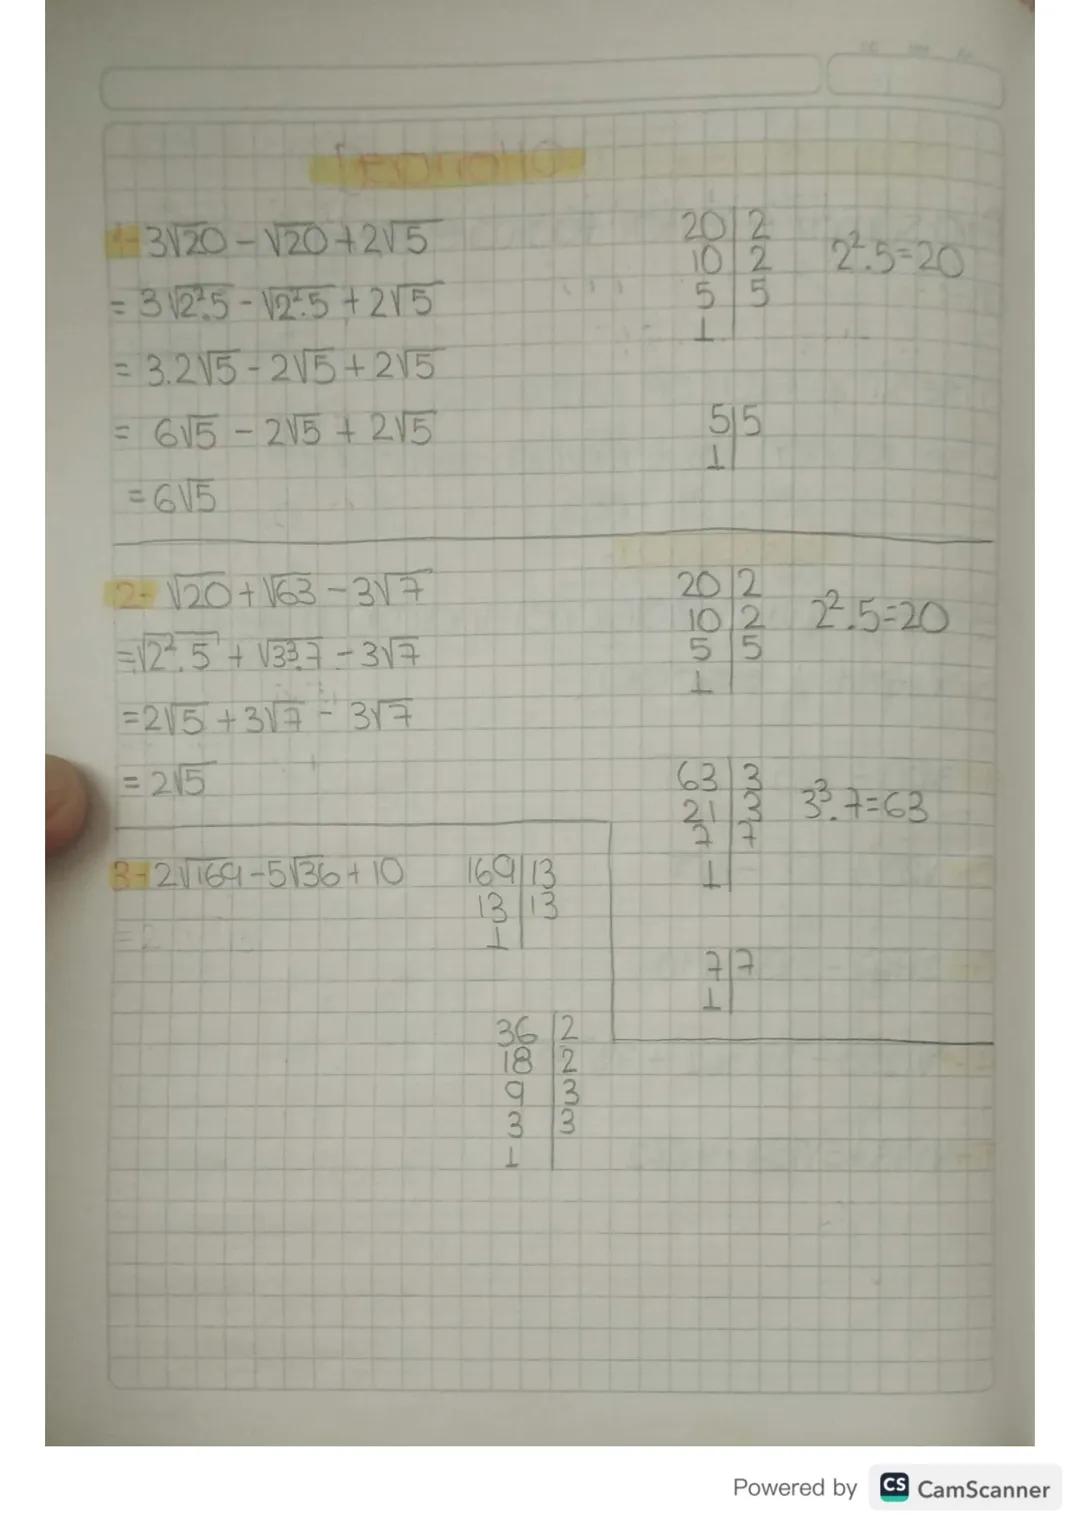 Desarrollo
1- 3√20 - √20 + 2√5
= 3√2².5 - √2².5 + 2√5
= 3.2√5 - 2√5 + 2√5
= 6√5 - 2√5 + 2√5
= 6√5
20 | 2
10 | 2
5 | 5
1
2².5=20
5 | 5
1
2- √20 + √63 - 3√7
= √2².5 + √3³.7 - 3√7
= 2√5 + 3√7 - 3√7
= 2√5
20 | 2
10 | 2
5 | 5
1
2².5=20
63 | 3
21 | 3
7 | 7
1
3³.7=63
7 | 7
1
3- 2√169 - 5√36 + 10
= 2
169 | 13
13 | 13
1
36 | 2
18 | 2
9 | 3
3 | 3
1
Powered by CS CamScanner